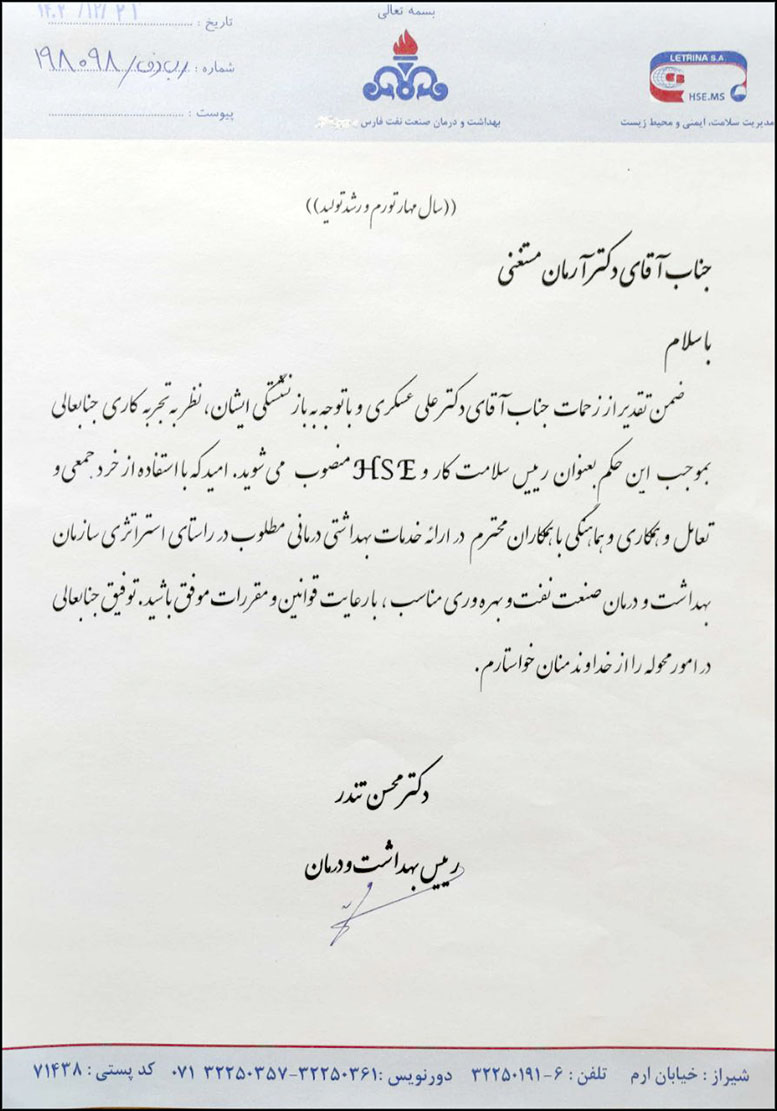 بسمه تعالی
تاریخ : ۱۴۰۲/۱۲/۲۱
شماره : /۱۹۸۰۹۸
پیوست :
LETRINA S.A.
HSE.MS
مدیریت سلامت، ایمنی و محیط زیست
بهداشت و درمان صنعت نفت فارس
((سال مهار تورم و رشد تولید))
جناب آقای دکتر آرمان مستغنی
با سلام
ضمن تقدیر از زحمات جناب آقای دکتر علی عسکری و با توجه به بازنشستگی ایشان، نظر به تجربه کاری جنابعالی
بموجب این حکم بعنوان رییس سلامت کار و HSE منصوب می شوید. امید که با استفاده از خرد جمعی و
تعامل و همکاری و هماهنگی با همکاران محترم در ارائه خدمات بهداشتی درمانی مطلوب در راستای استراتژی سازمان
بهداشت و درمان صنعت نفت و بهره وری مناسب ، با رعایت قوانین و مقررات موفق باشید. توفیق جنابعالی
در امور محوله را از خداوند منان خواستارم.
دکتر محسن تندر
رییس بهداشت و درمان
شیراز : خیابان ارم تلفن : ۶-۳۲۲۵۰۱۹۱ دورنویس :۳۲۲۵۰۳۶۱-۳۲۲۵۰۳۵۷ ۰۷۱ کد پستی : ۷۱۴۳۸